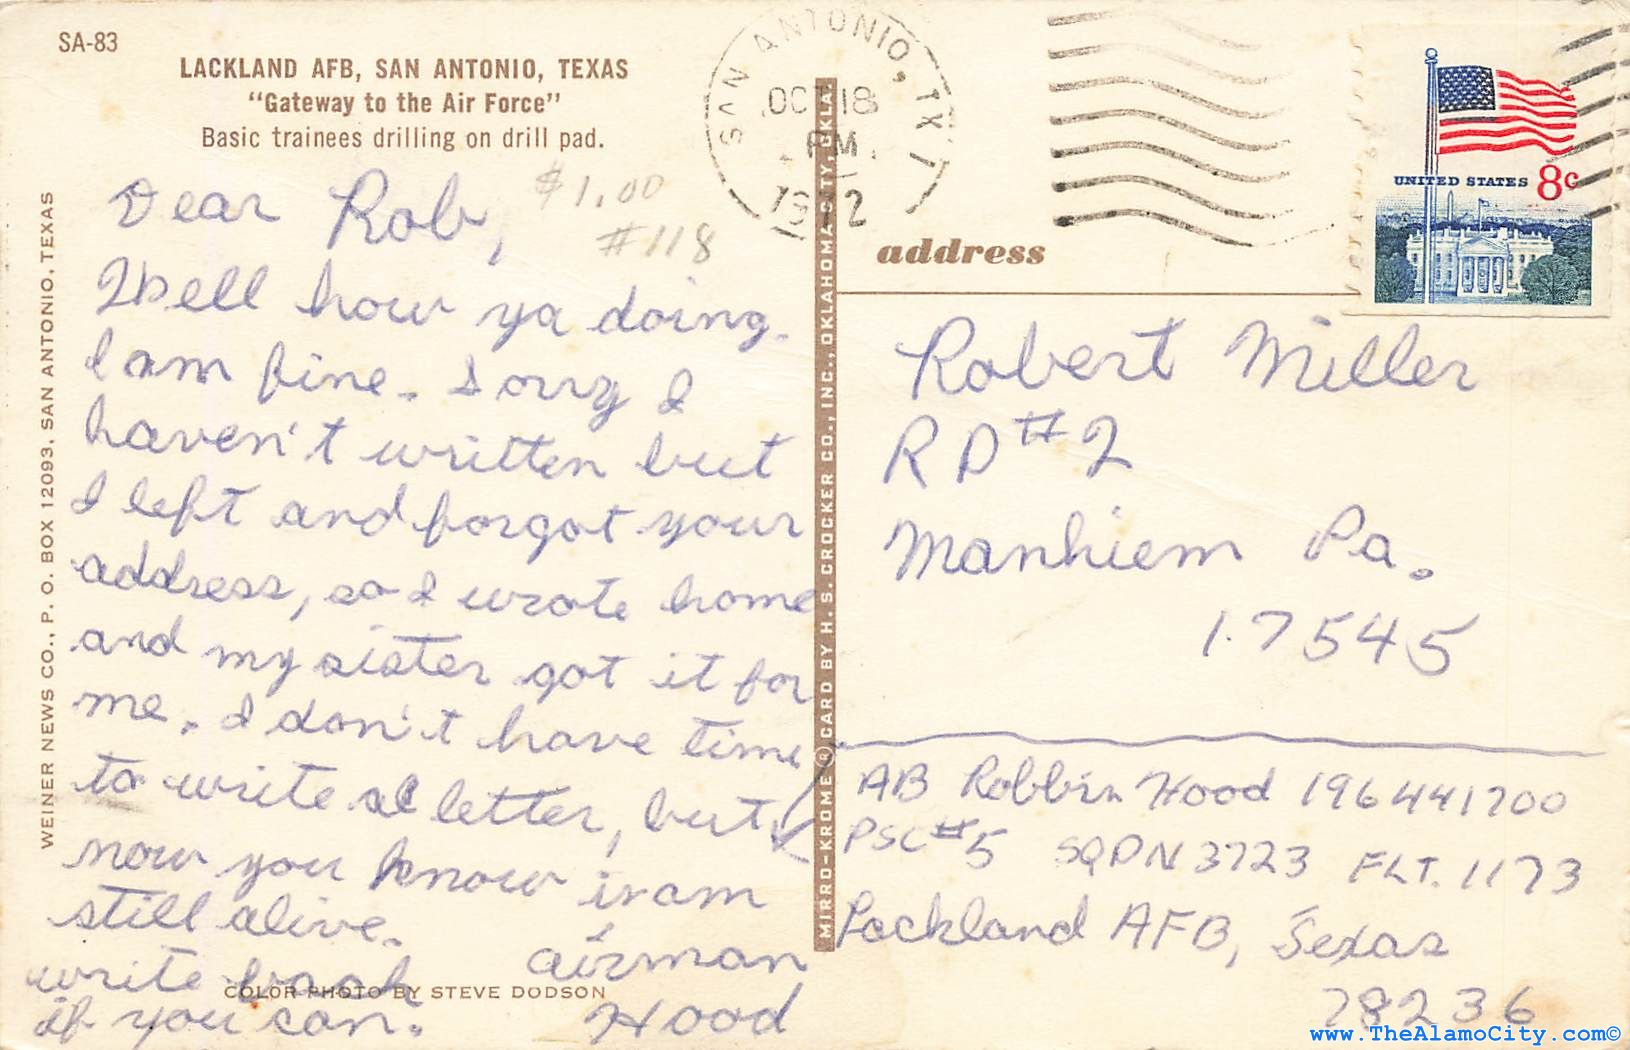 SA-83
LACKLAND AFB, SAN ANTONIO, TEXAS
"Gateway to the Air Force"
Basic trainees drilling on drill pad.
WEINER NEWS CO., P. O. BOX 12093, SAN ANTONIO, TEXAS
$1.00
#118
Dear Rob,
Well how ya doing.
I am fine. Sorry I
haven't written but
I left and forgot your
address, so I wrote home
and my sister got it for
me. I don't have time
to write a letter, but
now you know I am
still alive.
write back
if you can.
airman
Hood
COLOR PHOTO BY STEVE DODSON
MIRRO-KROME® CARD BY H. S. CROCKER CO., INC., OKLAHOMA CITY, OKLA.
SAN ANTONIO, TX
OCT 18
PM
1972
UNITED STATES 8c
address
Robert Miller
RD #2
Manhiem Pa.
17545
AB Robbin Hood 196441700
PSC #5 SQDN 3723 FLT. 1173
Lackland AFB, Texas
78236
www.TheAlamoCity.com©